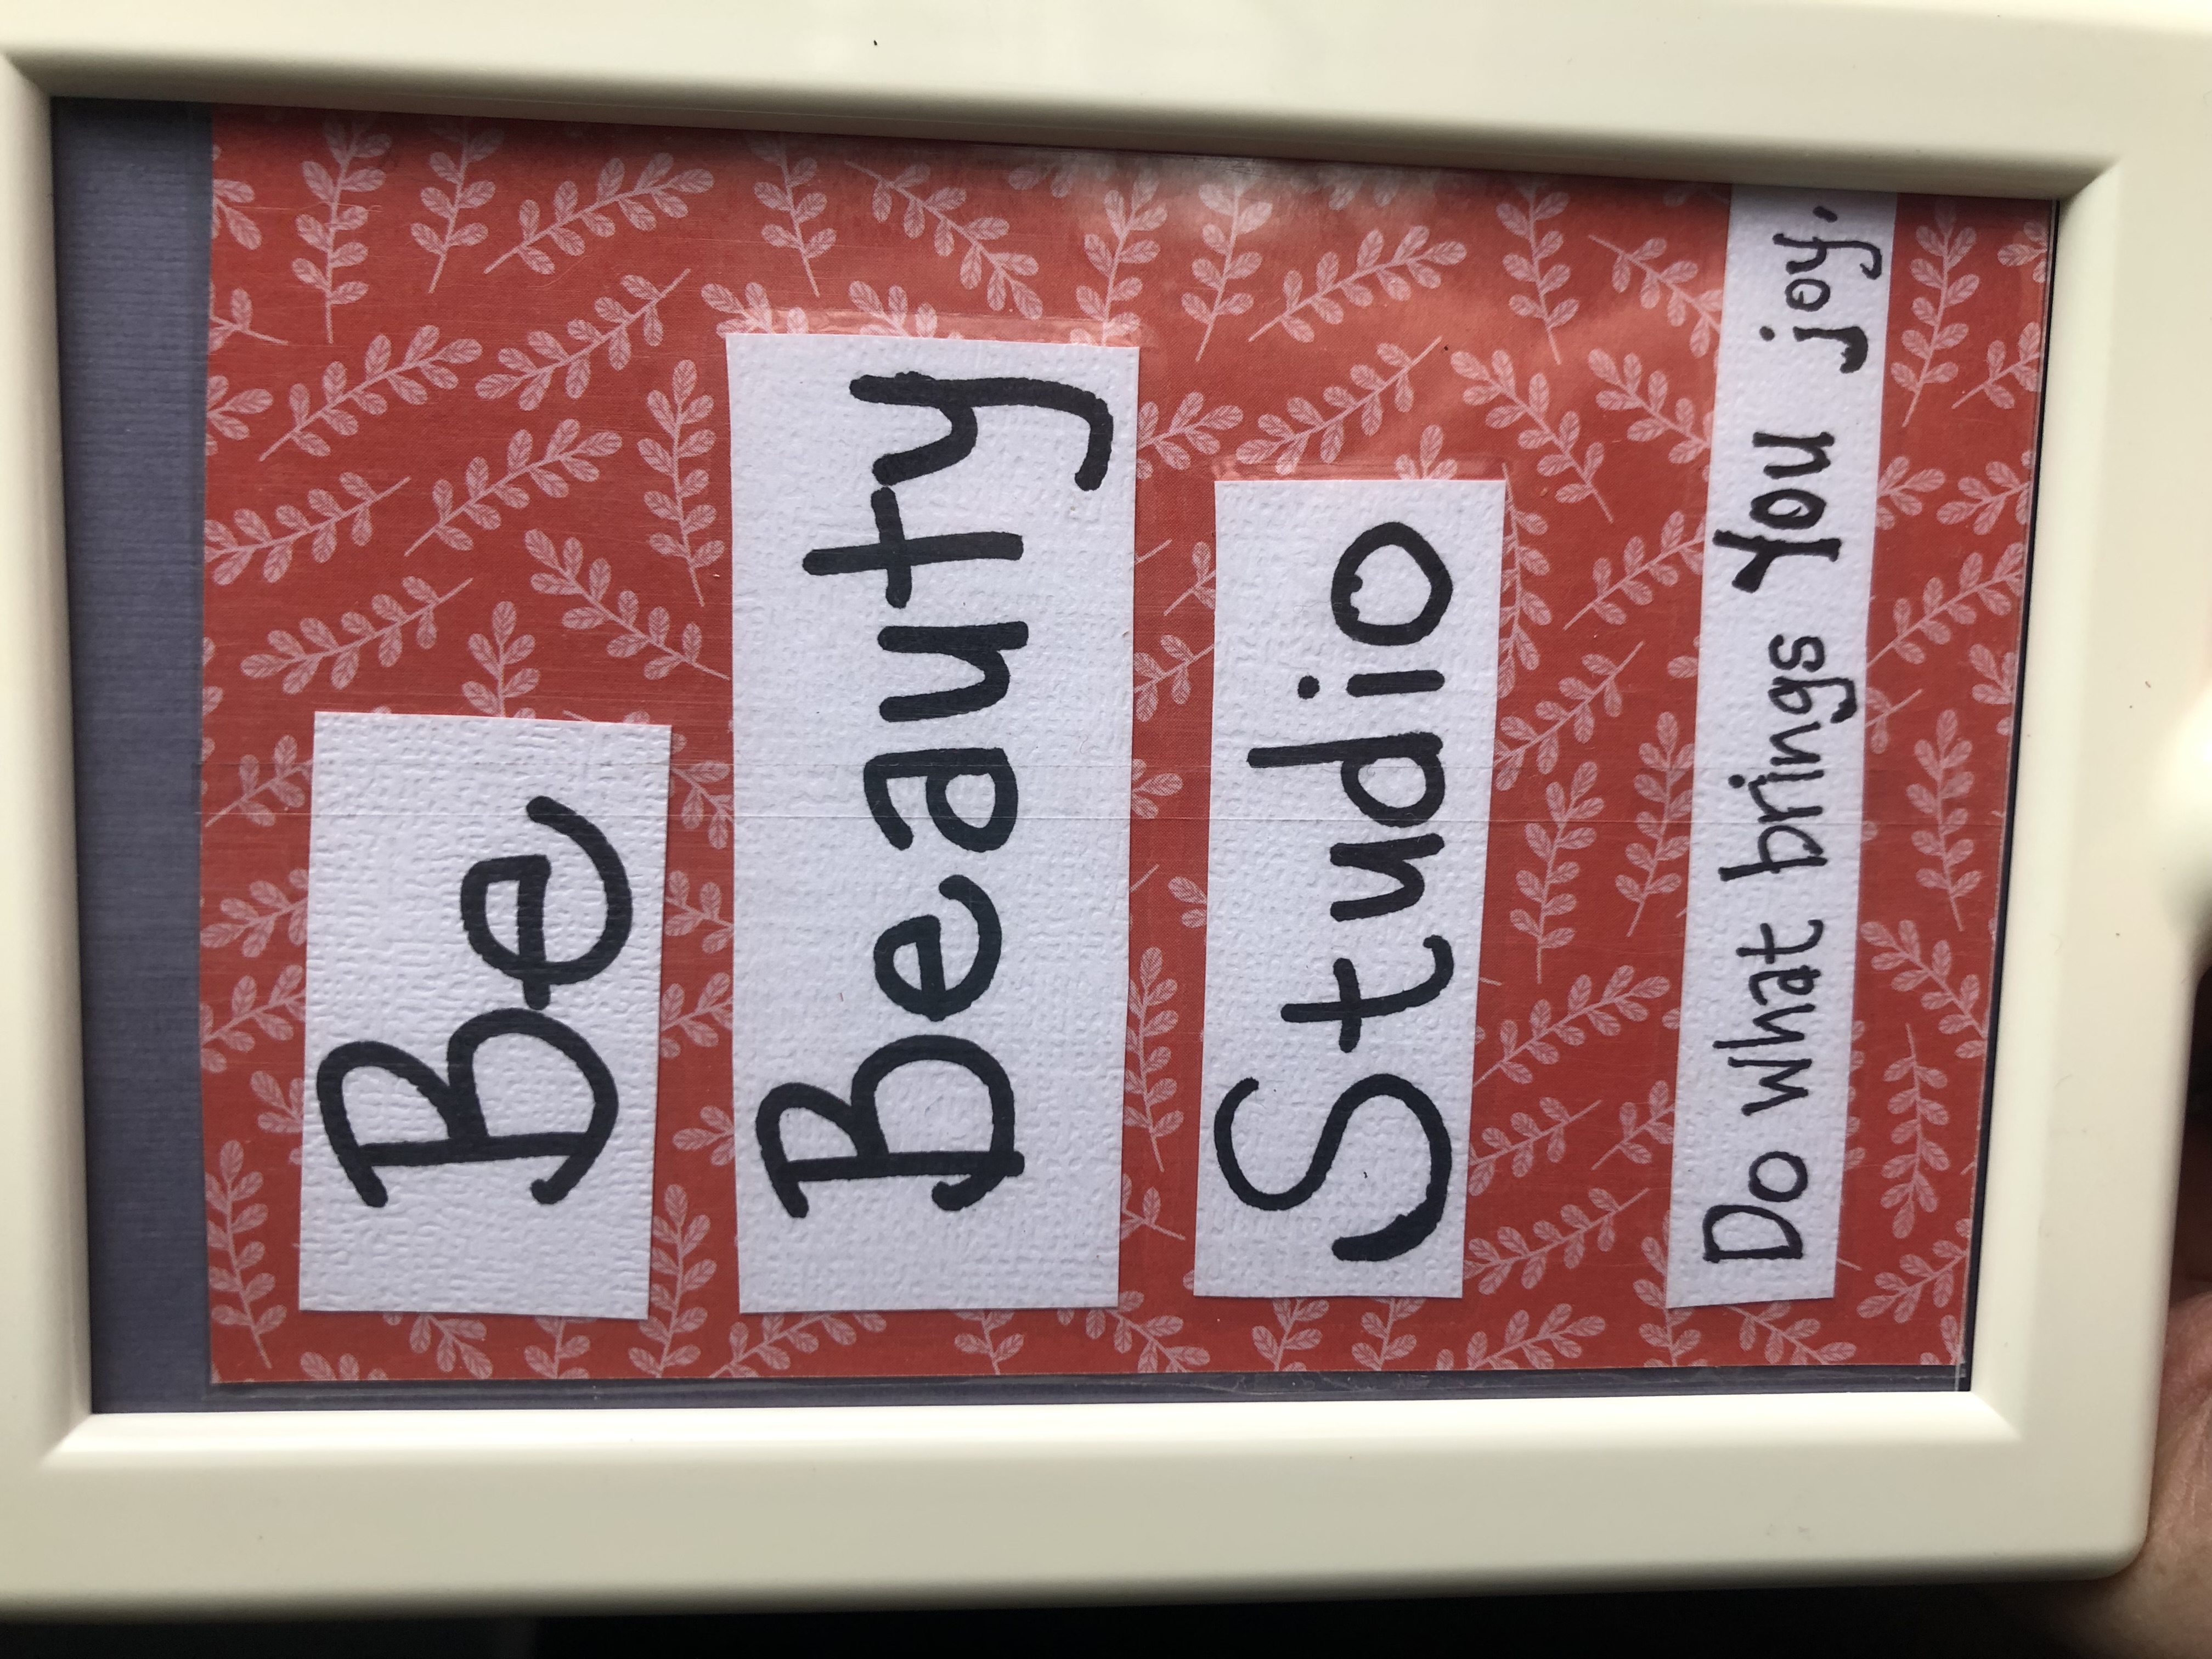 Be
Beauty
Studio
Do what brings You joy.